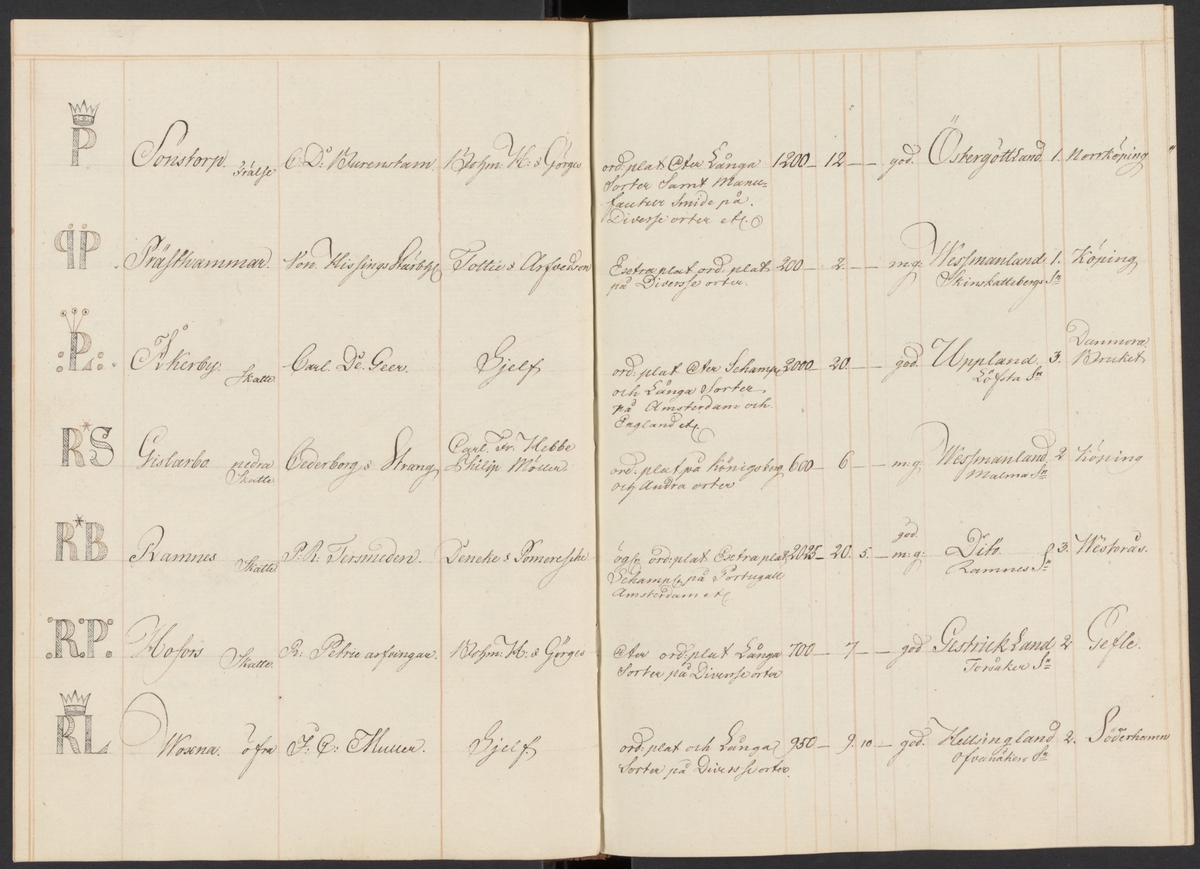 P Sonstorp. Frälse C. D: Burenstam Bohm: H: & Görges ord. plat Eter Långa 1200 – 12 – god. Östergöttland. 1. Norrköping
Sorter Samt Manu-
factur Smide på
Diverse orter etc.
PP Prästhammar. Von. Hissings Stärbh. Tottie & Arfvedson Extra plat. ord. plat 200 – 2 – m.g: Westmanland 1. Köping
på Diversse orter. Skinskatteberg Sn
:P: Åkerby. Skatte. Carl. De. Geer. Sjelf ord. plat Eter Schamp. 2000 – 20 – god. Uppland. 3. Danmora
Bruket
och Långa Sorter Löfsta Sn
på Amsterdam och
England etc
R*S Gislarbo nedra Cederborg & Strang Carl. Fr. Hebbe
Skatte Philip Möller
ord. plat på Königsbeg 600 – 6 – m.g. Westmanland 2 Köping
och Andra orter Malma Sn
R*B Ramnes Skatte P. R. Tersmeden. Deneke & Pomeresche ord. plat Extra plat 2025 – 20. 5 – god.
m:g: Dito 3. Westerås.
Schamp. på Portugall Ramnes Sn
Amsterdam etc
:R:P: Hofors Skatte. R: Petrus arfvingar. Bohm: H: & Görges Eter ord. plat Långa 700 – 7 – god Gestrickland 2 Gefle.
Sorter på Diversse orter Torsåker Sn
RL Woxna. öfra F. C: Muller. Sjelf. ord. plat och Långa 950 – 9. 10 – god. Helsingland 2. Söderhamn
Sorter på Diversse orter. Ofvanåkers Sn